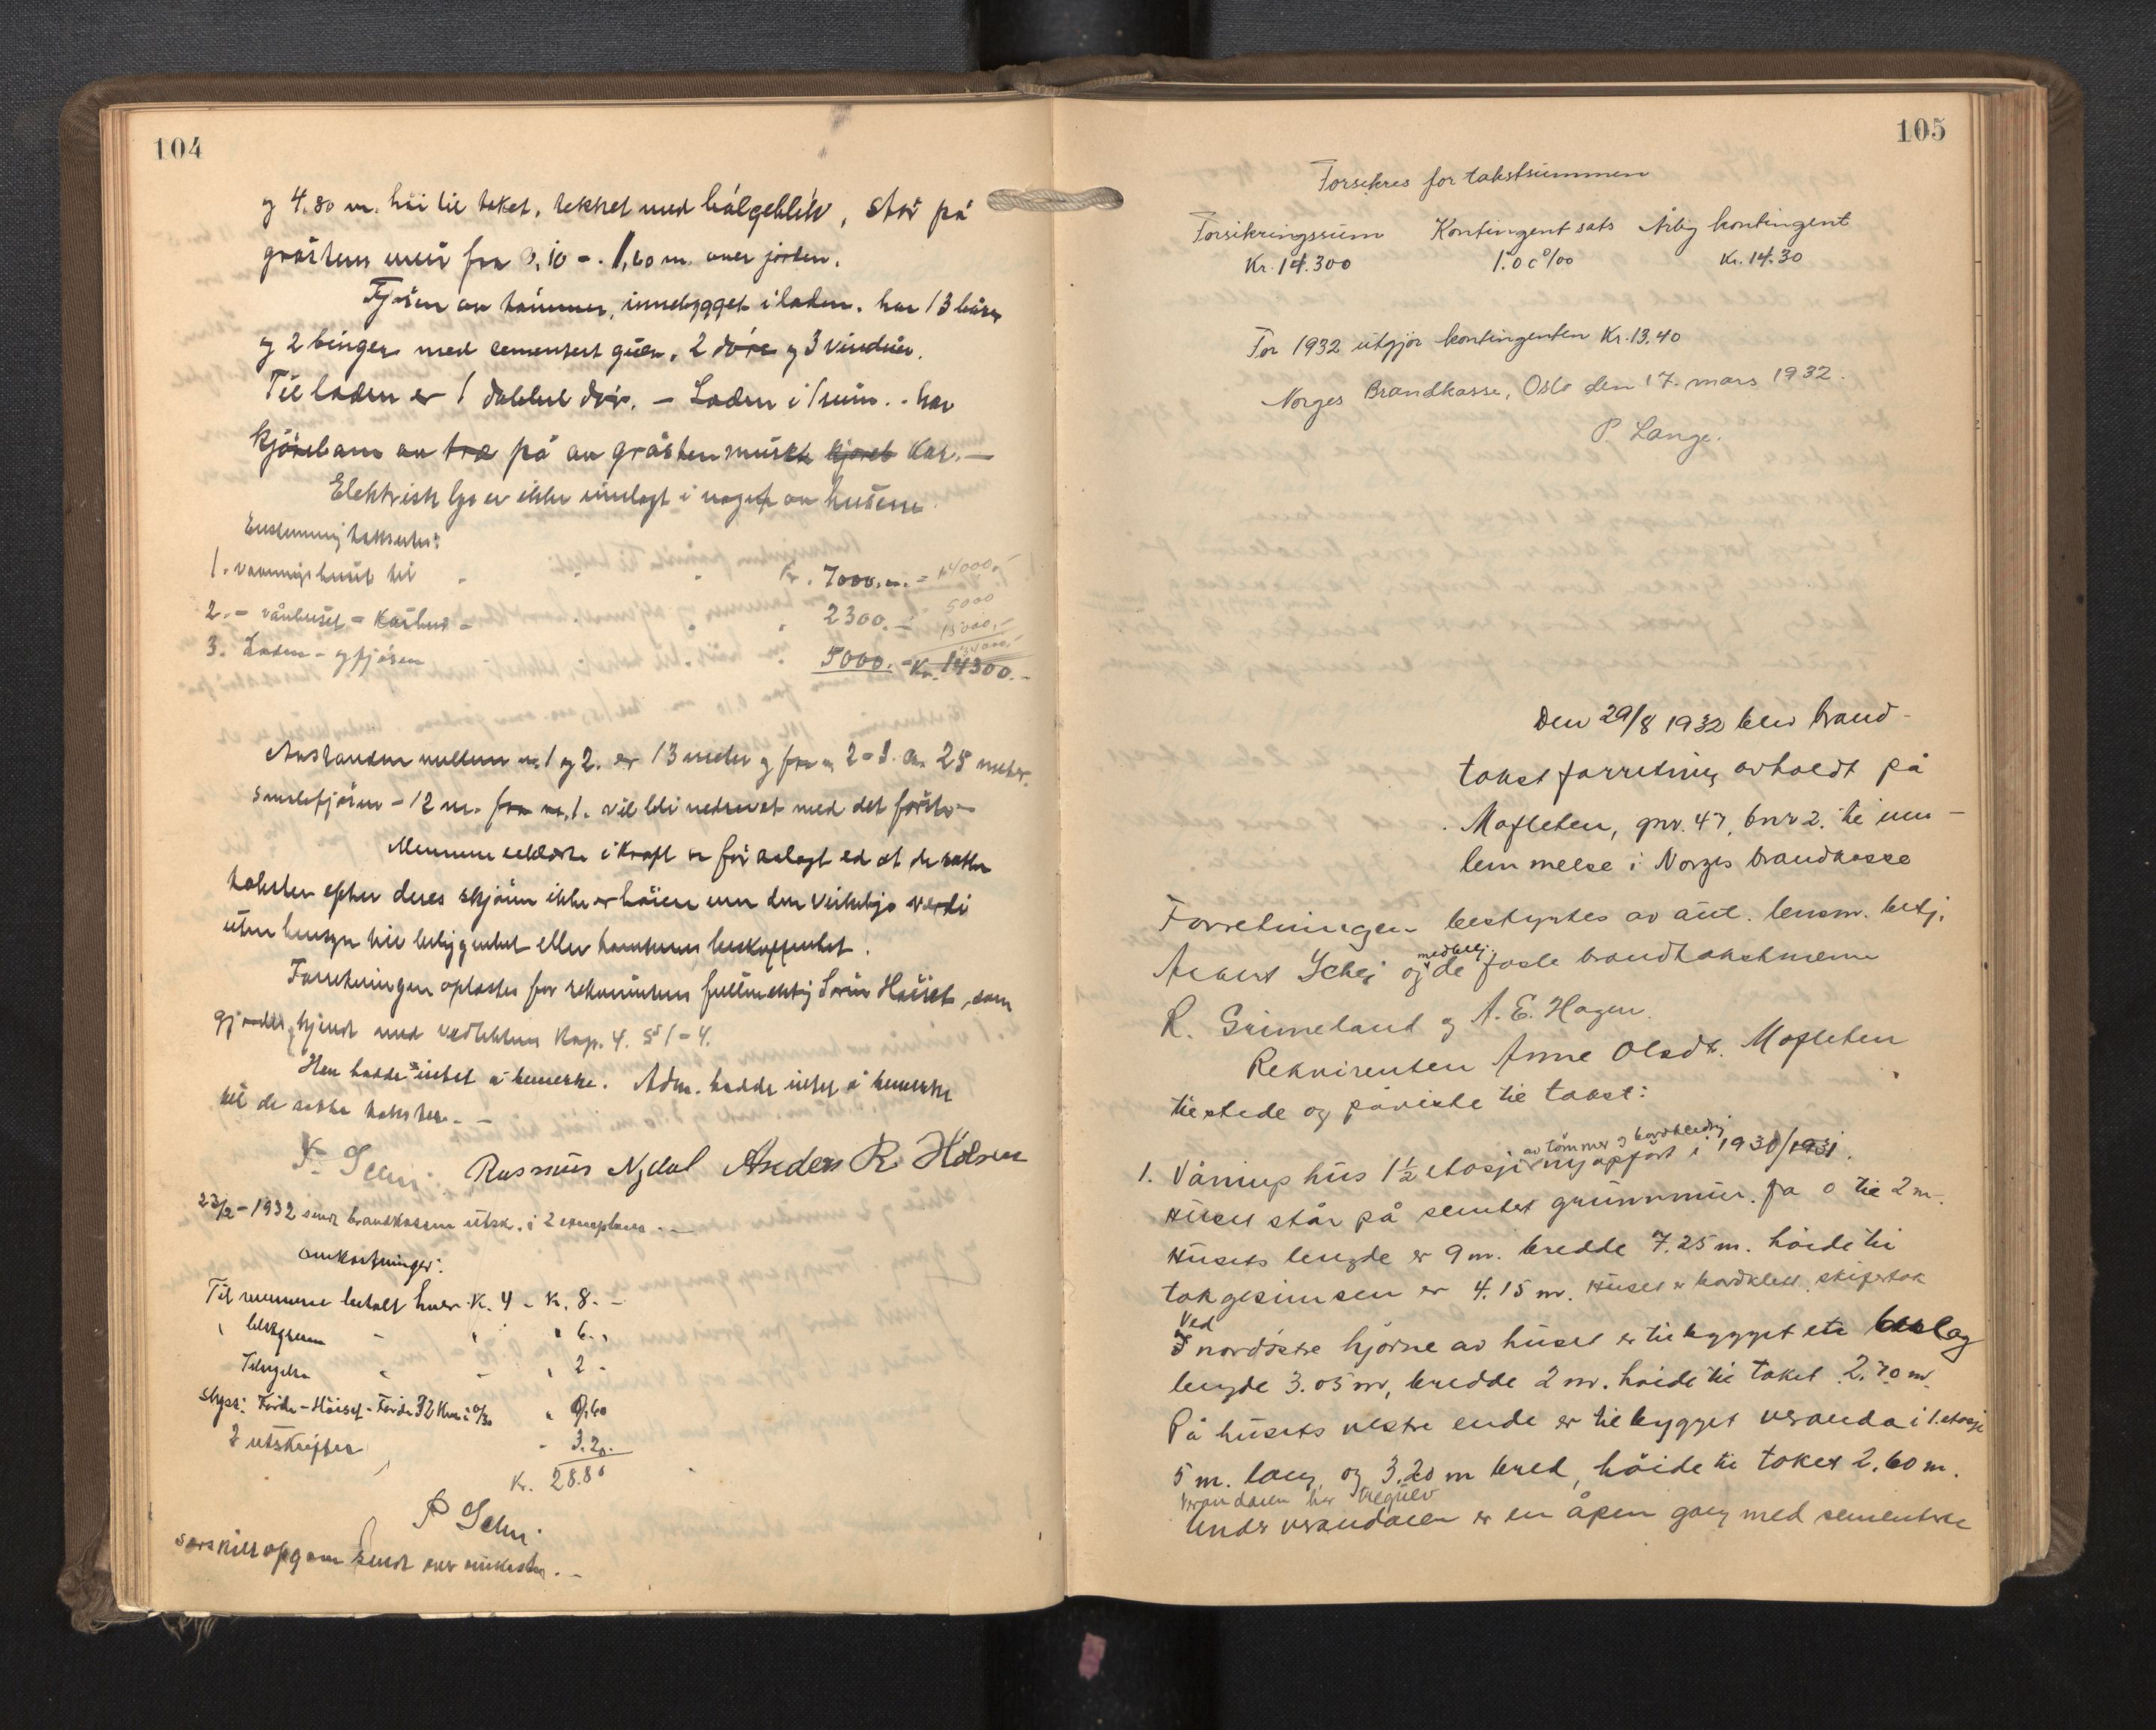 104
og 4.80 m. høi til taket, tekket med bålgeblik, står på
gråstens mur fra 0,10 - 1,60 m. over jorden.
Fjösen av tømmer, innebygget i laden. har 13 båser
og 2 binger med sementert gulv, 2 döre og 3 vinduer.
Til laden er 1 dobbel dör. - Laden i 1 rum. - har
kjörebane av træ på av gråsten kar. -
Elektrisk lys er ikke innlagt i noget av husene.
Enstemmig taksertes:
1. vaaningshuset til - - - Kr. 7000.- = 14000.-
2. - vånhuset - - 2300. - 5000
15000.-
3. Laden - og fjösen 5000. - Kr. 14300.-
34000.-
Avstanden mellem nr. 1 og 2. er 13 meter og fra 2 - 3. 28 meter.
Smalefjösen - 12 m. fra nr. 1. vil bli nedrevet med det förste -
Mennene erklærte i kraft av för avlagt ed at de satte
takster efter deres skjönn ikke er höiere enn den virkelige verdi
uten hensyn til beliggenhet eller tomtens beskaffenhet.
Forretningen oplæstes for rekvirentens fullmektig Høiset, som
gjordes kjendt med vedtekters Kap. 4. §§ 1-4.
Han hadde intet å bemerke. Adm. hadde intet å bemerke
til de satte takster. -
Rasmus Nydal Anders R. Holsen
23/2 - 1932 sendt brandkassen utskr. i 2 exemplarer. -
omkostninger:
Til mennene betalt hver Kr. 4 - Kr. 8. -
" 6. "
" 2 -
Skyss: Förde - Höiset - Förde 32 Km à 0/30 " 9,60
2 utskrifter - 3.20.
Kr. 28.80
særskilt opgave sendt over omkostn. -
105
Forsikres for takstsummen
Forsikringssum Kontingent sats Årlig kontingent
Kr. 14.300 1.00 ‰ Kr. 14.30
For 1932 utgjör kontingenten Kr. 13.40
Norges Brandkasse, Oslo den 17. mars 1932.
P. Lange.
Den 29/8 1932 blev brand-
takst forretning avholdt på
Mofleten, gnr. 47, bnr 2. til inn-
lemmelse i Norges brandkasse
Forretningen bestyrtes av aut. lensm. betj.
og de faste brandtakstmenn
R. Grimeland og A. E. Hagen.
Rekvirenten Anne Olsdt. Mofleten
tilstede og påviste til takst:
av tömmer og bordkledning
1. Våningshus 1½ etasje nyopfört i 1930/1931.
Huset står på sementert grunnmur. fra 0 til 2 m.
Husets lengde er 9 m. bredde 7.25 m. höide til
takgesimsen er 4.15 m. Huset er bordklett. skifertak
Ved
nordöstre hjörne av huset er tilbygget ete beslag
lengde 3.05 m, bredde 2 m. höide til taket 2.70 m.
På husets vestre ende er tilbygget veranda i 1. etasje
5 m. lang og 3.20 m bred, höide til taket 2.60 m.
Verandaen har tregulv
Under verandaen er en åpen gang med sementerte